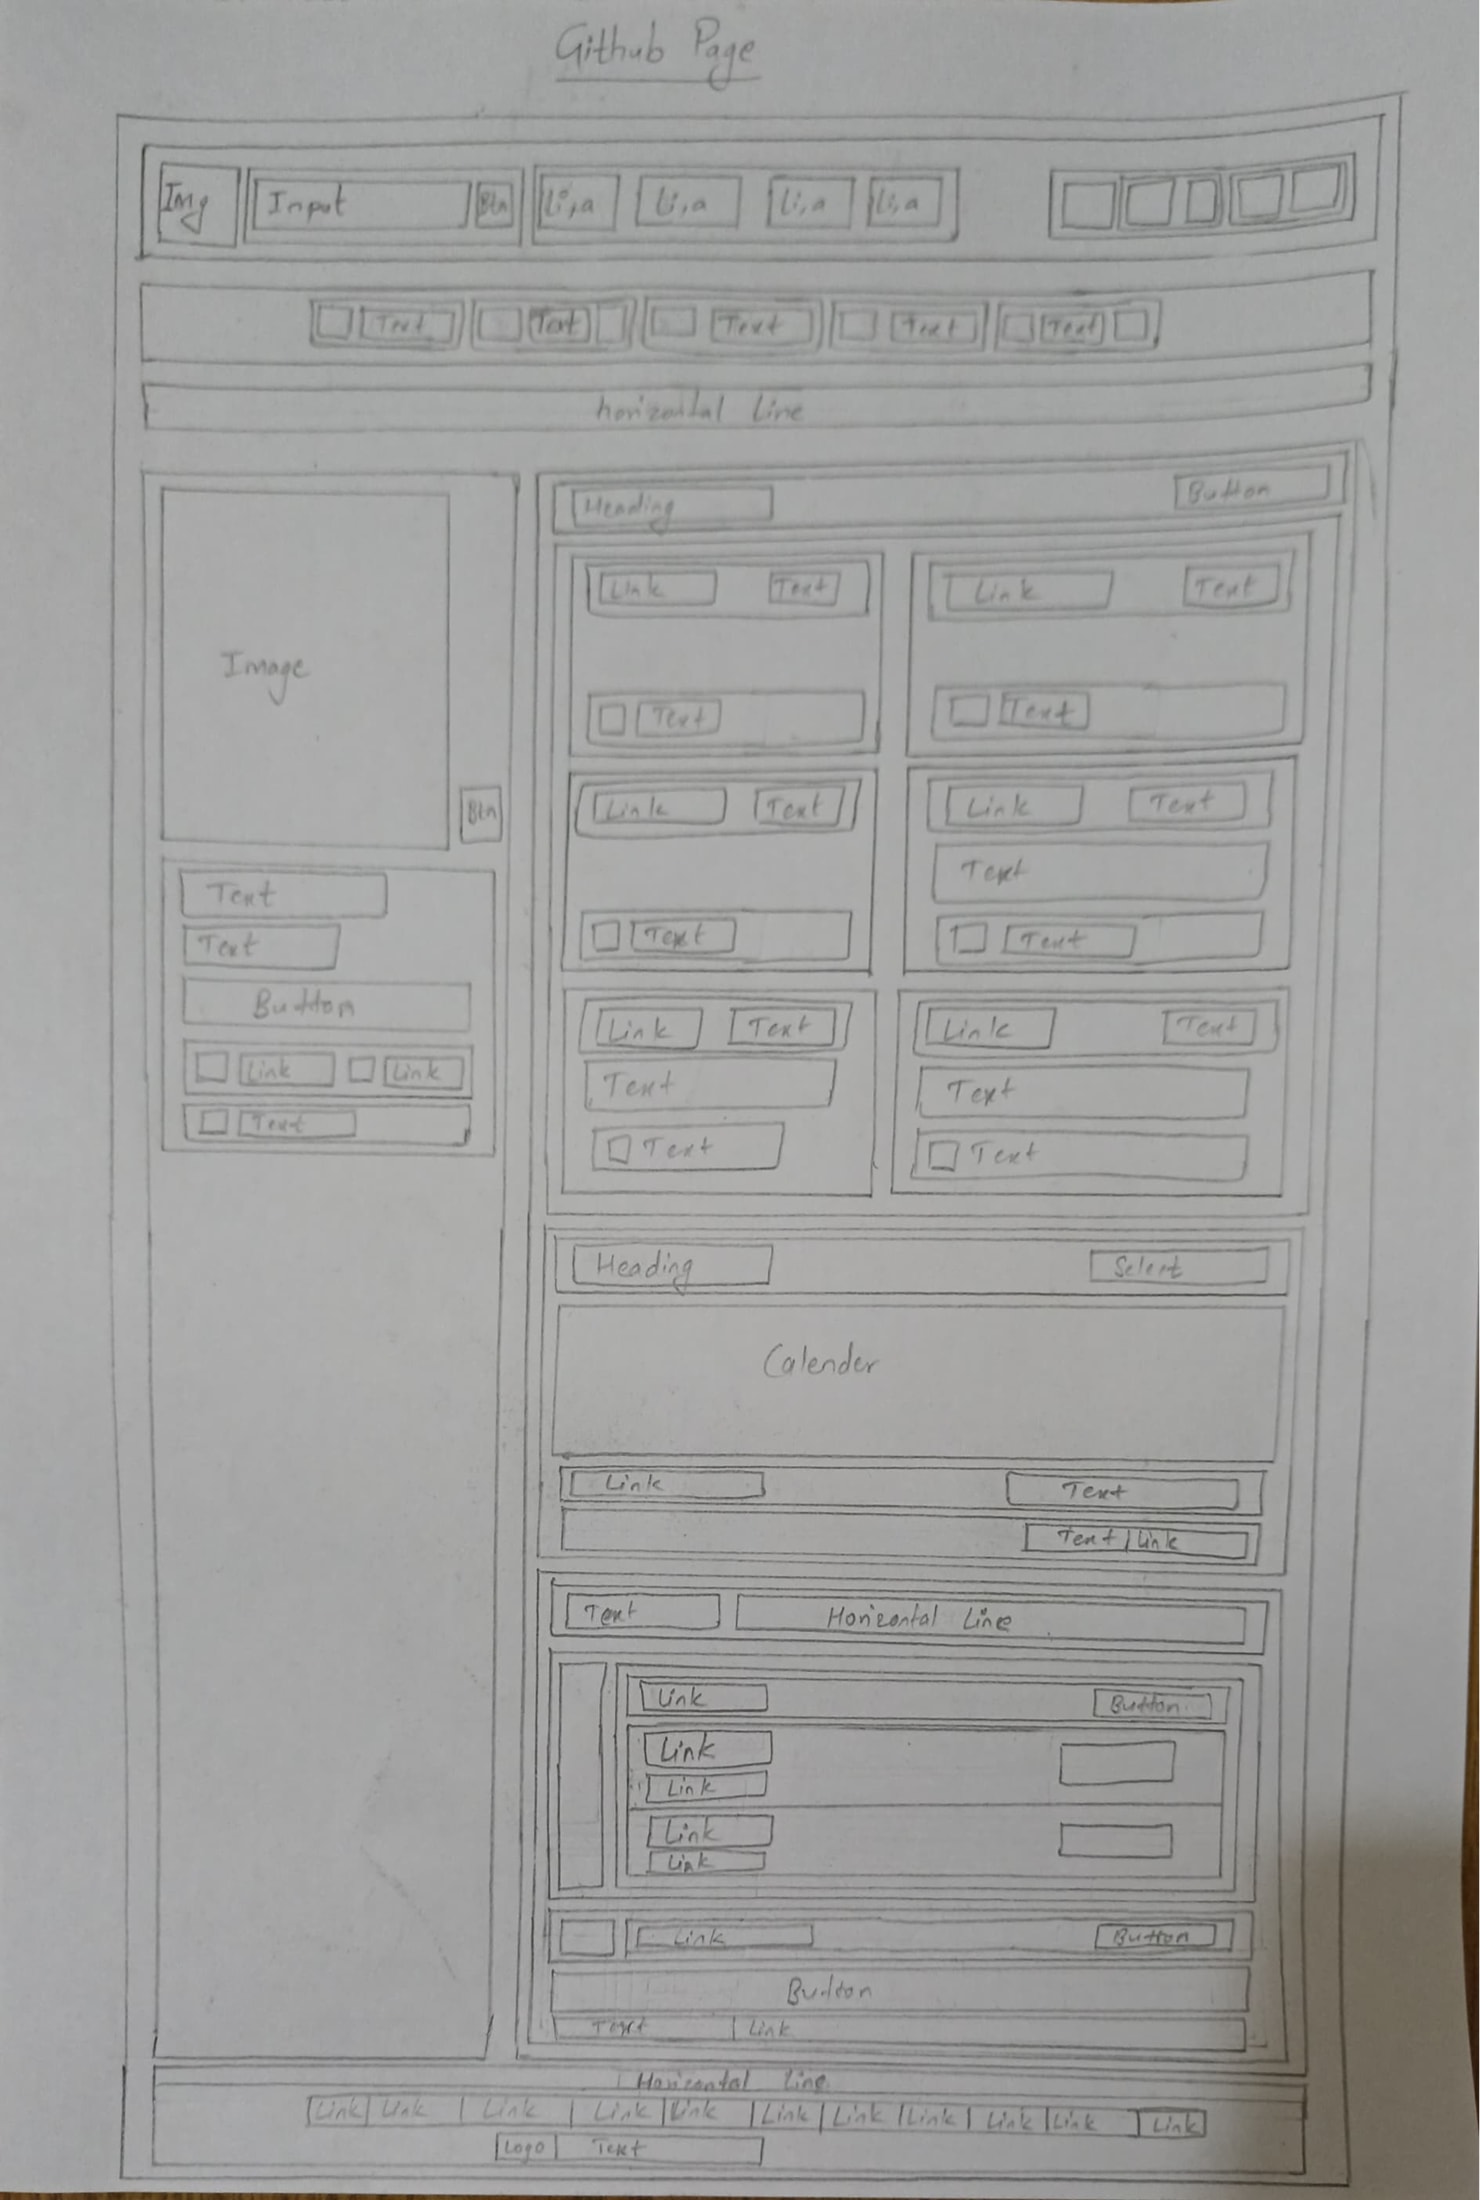 Github Page
Img Input Btn Li,a Li,a Li,a Li,a
Text Text Text Text Text
horizontal Line
Image
Btn
Text
Text
Button
Link Link
Text
Heading Button
Link Text Link Text
Text Text
Link Text Link Text
Text
Text Text
Link Text Link Text
Text Text
Text Text
Heading Select
Calender
Link Text
Text | Link
Text Horizontal Line
Link Button
Link
Link
Link
Link
Link Button
Button
Text | Link
Horizontal Line
Link Link Link Link Link Link Link Link Link Link Link
Logo Text